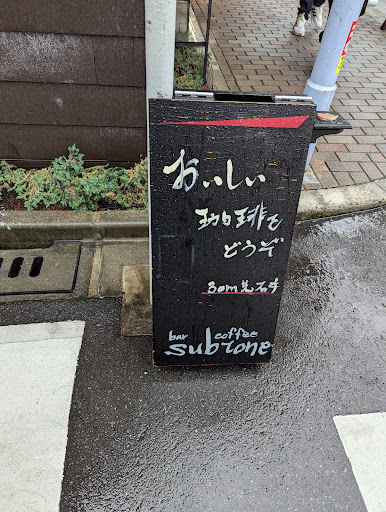 おいしい
珈琲を
どうぞ
30m先右手
bar coffee
subtone